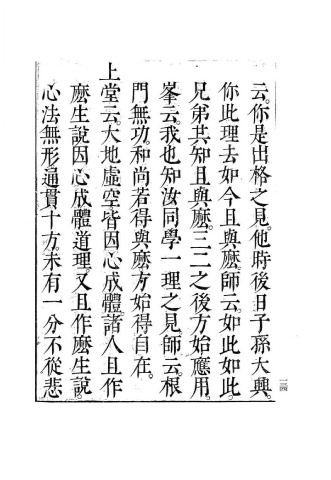 云。你是出格之見。他時後日子孫大興。
你此理去如今且與麽。師云。如此如此。
兄弟共知且與麽。三二之後方始應用。
峯云。我也知汝同學一理之見。師云。根
門無功。和尚若得與麽方始得自在。
上堂云。大地虛空皆因心成體。諸人且作
麽生說因心成體道理。又且作麽生說。
心法無形通貫十方。未有一分不從悲